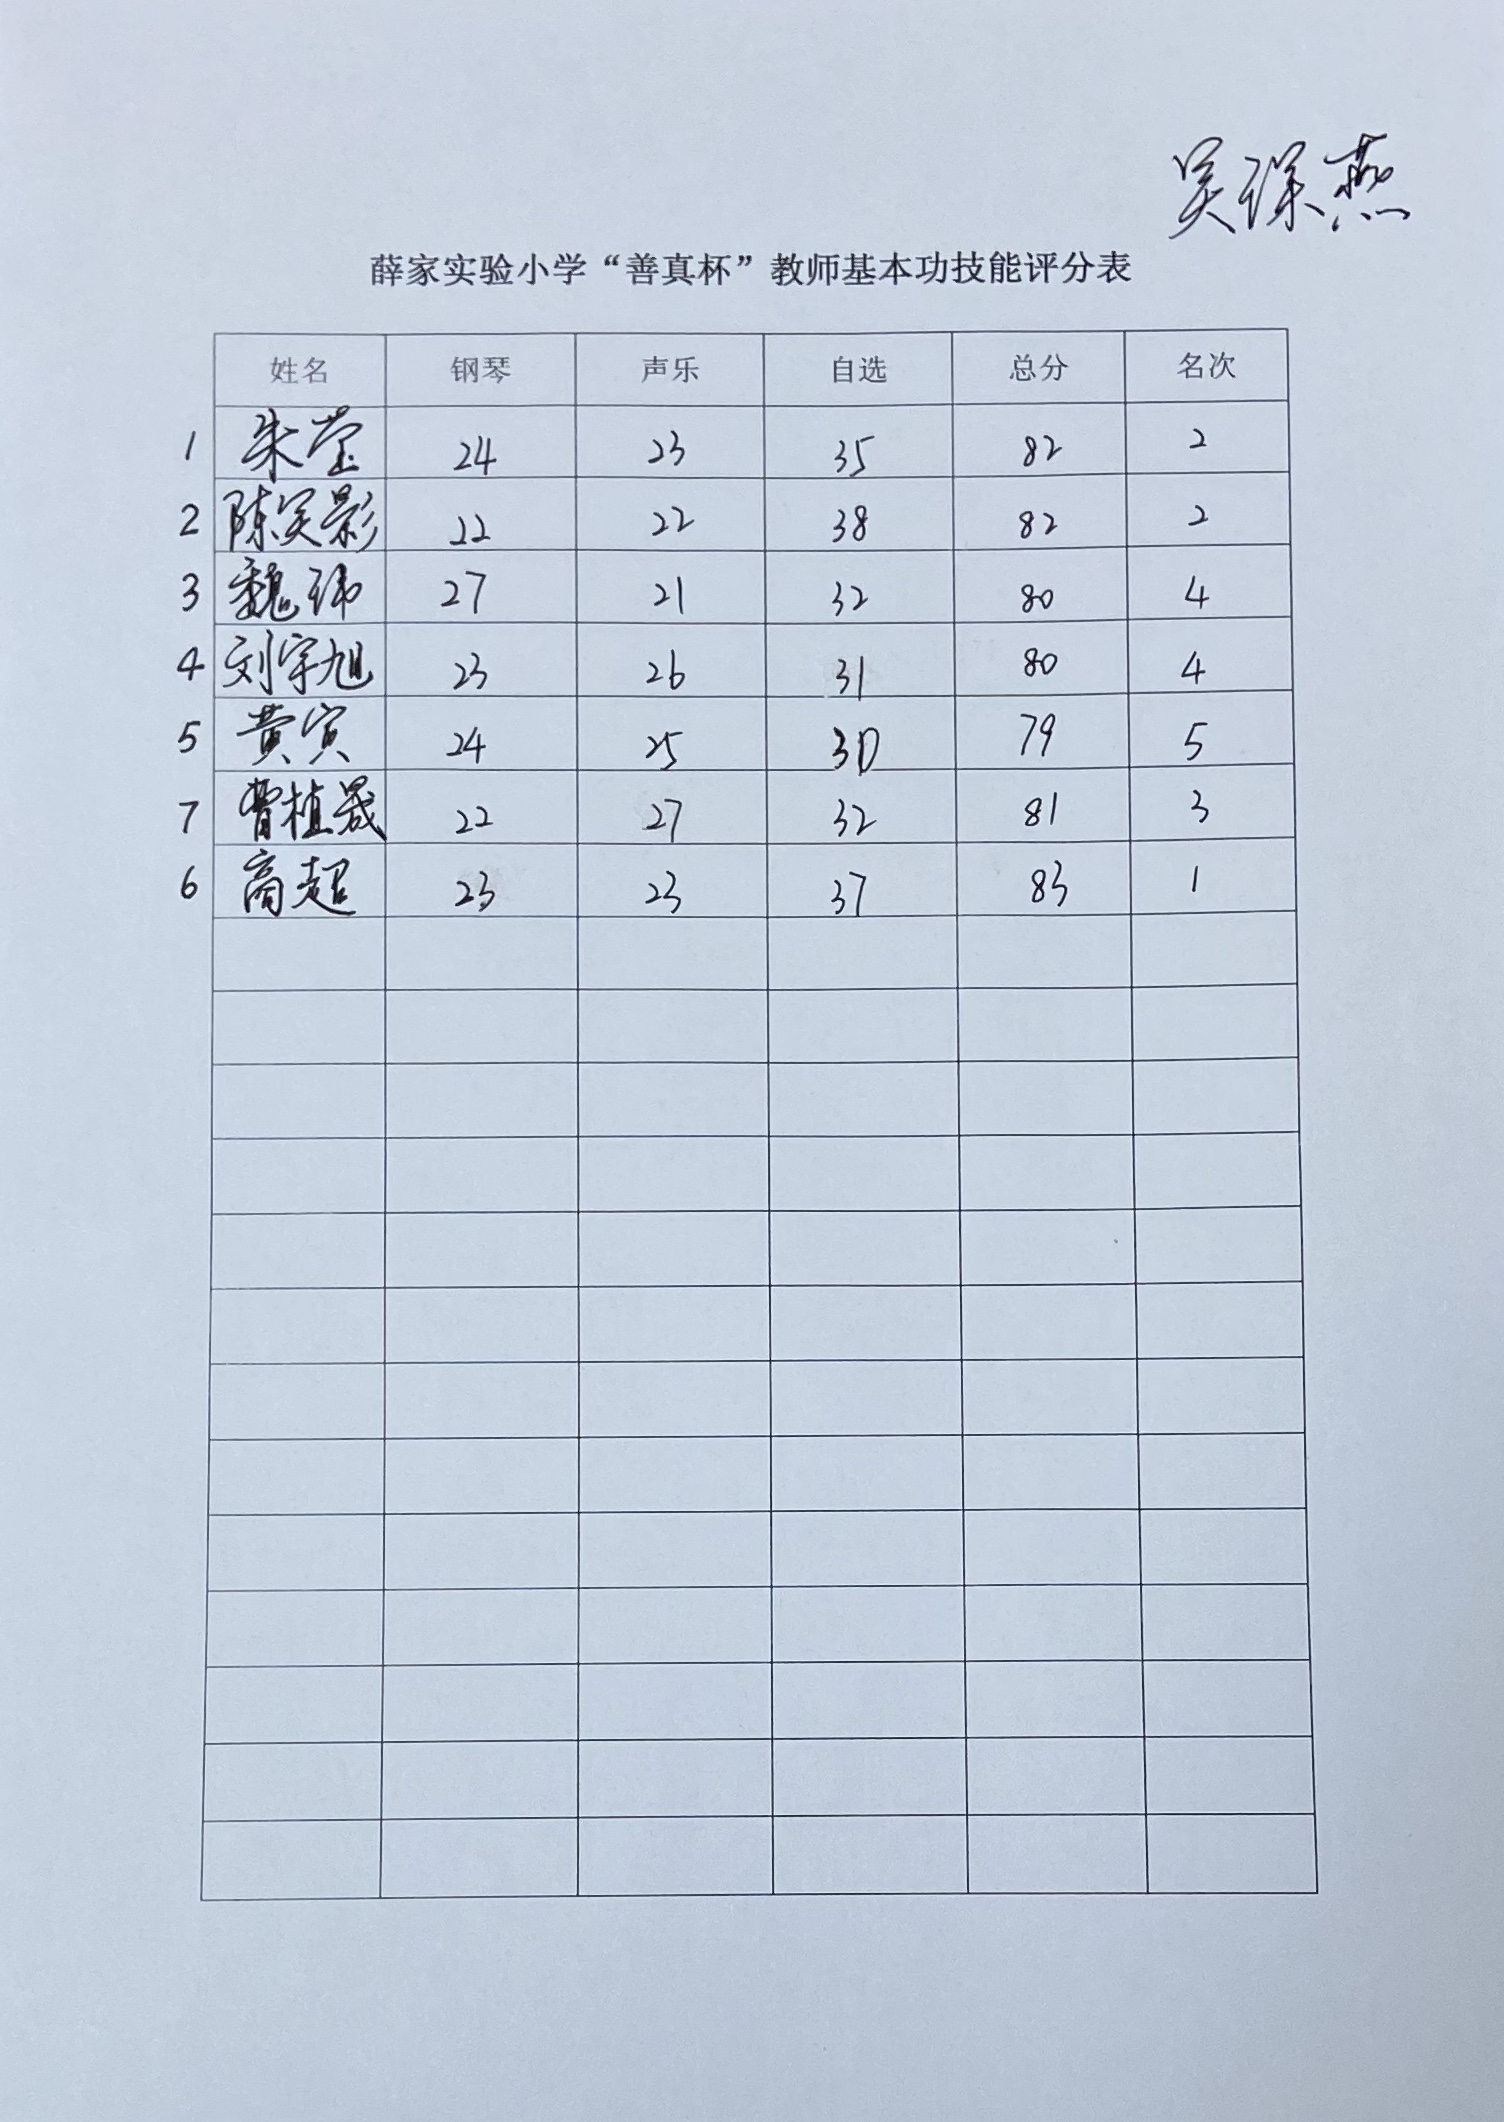 吴琛燕
薛家实验小学“善真杯”教师基本功技能评分表
姓名 钢琴 声乐 自选 总分 名次
1 朱莹 24 23 35 82 2
2 陈笑影 22 22 38 82 2
3 魏玮 27 21 32 80 4
4 刘宇旭 23 26 31 80 4
5 黄寅 24 25 30 79 5
7 曹植晟 22 27 32 81 3
6 高超 23 23 37 83 1